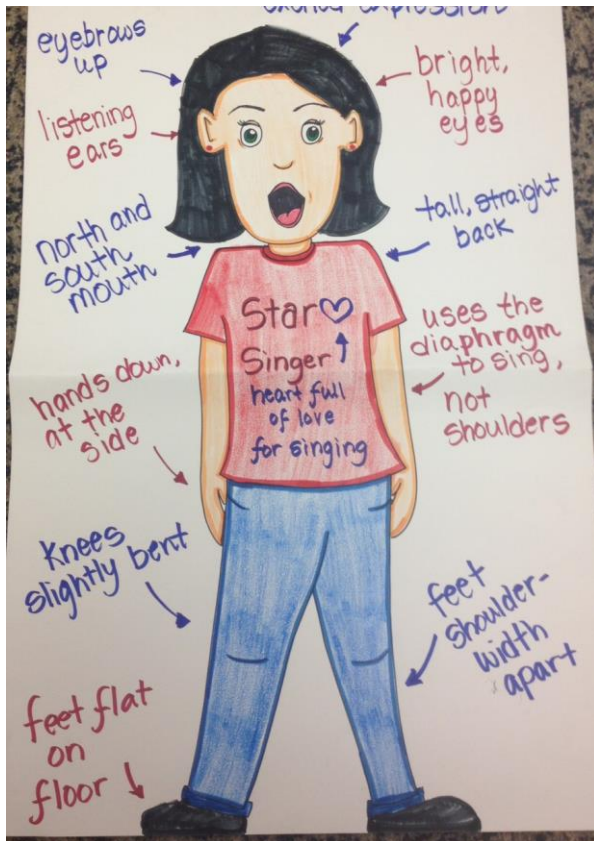 excited expression
eyebrows
up
bright,
happy
eyes
listening
ears
north and
south
mouth
tall, straight
back
Star
Singer
heart full
of love
for singing
uses the
diaphragm
to sing,
not
shoulders
hands down,
at the
side
knees
slightly bent
feet
shoulder-
width
apart
feet flat
on
floor